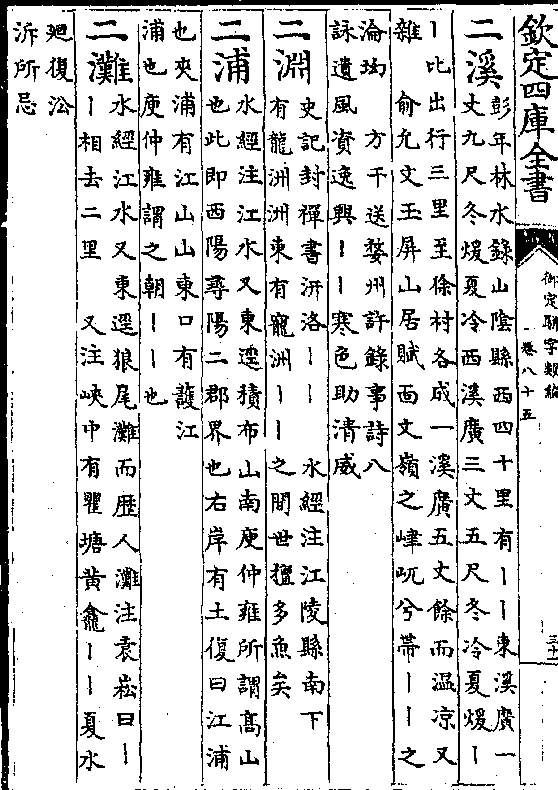 欽定四庫全書
御定駢字類編
卷八十五
二溪
彭年林水錄山陰縣西四十里有丨丨東溪廣一
丈九尺冬煖夏冷西溪廣三丈五尺冬冷夏煖丨
丨比出行三里至徐村各成一溪廣五丈餘而溫凉又
雜 俞允文玉屏山居賦面文嶺之嵂屼兮帶丨丨之
淪坳 方干送婺州許錄事詩八
詠遺風資逸興丨丨寒色助清威
二淵
史記封禪書汧洛丨丨 水經注江陵縣南下
有龍洲洲東有寵洲丨丨之間世擅多魚矣
二浦
水經注江水又東逕積布山南庾仲雍所謂高山
也此即西陽尋陽二郡界也右岸有土復曰江浦
也夾浦有江山山東口有護江
浦也庾仲雍謂之朝丨丨也
二灘
水經江水又東逕狼尾灘而歷人灘注袁崧曰丨
丨相去二里 又注峽中有瞿塘黃龕丨丨夏水
廻復㳂
泝所忌